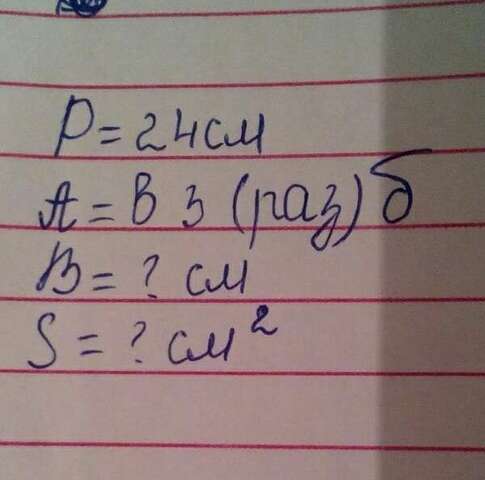 P = 24см
A = В 3 (раз) б
B = ? см
S = ? см²